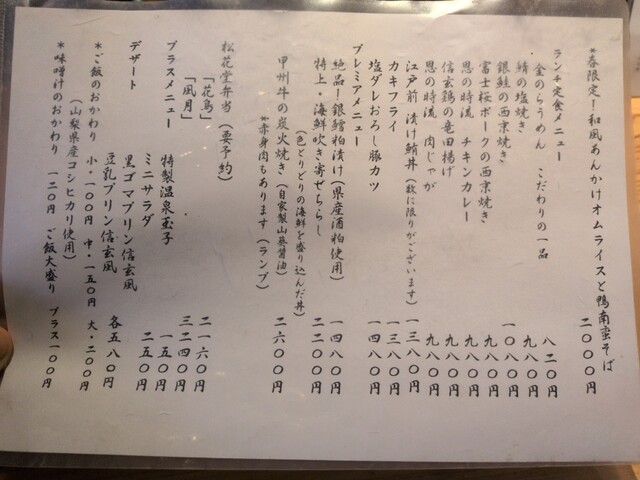 *春限定!和風あんかけオムライスと鴨南蛮そば 二〇〇〇円
ランチ定食メニュー
金のらうめん こだわりの一品 八二〇円
鯖の塩焼き 九八〇円
銀鮭の西京焼き 一〇八〇円
富士桜ポークの西京焼き 九八〇円
恩の時流 チキンカレー 九八〇円
信玄鶏の竜田揚げ 九八〇円
恩の時流 肉じゃが 九八〇円
江戸前 漬け鮪丼(数に限りがございます) 一三八〇円
カキフライ 一三八〇円
塩ダレおろし豚カツ 一四八〇円
プレミアメニュー
絶品!銀鱈粕漬け(県産酒粕使用) 一四八〇円
特上・海鮮吹き寄せちらし 二二〇〇円
(色とりどりの海鮮を盛り込んだ丼)
甲州牛の炭火焼き(自家製山葵醤油) 二六〇〇円
*赤身肉もあります(ランプ)
松花堂弁当(要予約)
「花鳥」 二一六〇円
「風月」 三二四〇円
プラスメニュー 特製温泉玉子 一五〇円
ミニサラダ 二五〇円
デザート 黒ゴマプリン信玄風
豆乳プリン信玄風 各五八〇円
*ご飯のおかわり 小・一〇〇円 中・一五〇円 大・二〇〇円
(山梨県産コシヒカリ使用)
*味噌汁のおかわり 一二〇円 ご飯大盛り プラス一〇〇円